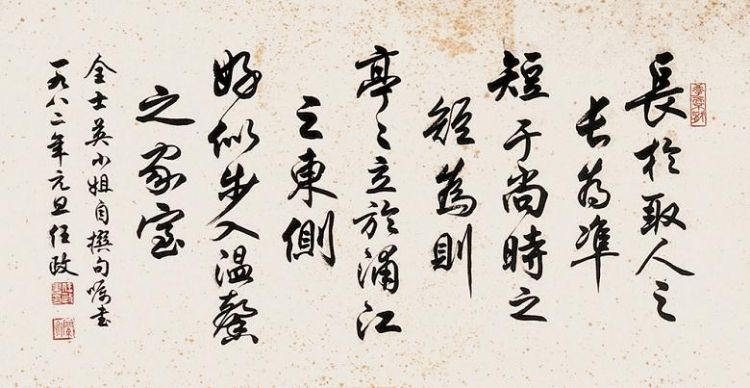 長於取人之
长为準
短于尚時之
短為則
亭亭立於浦江
之東側
好似步入温馨
之家室
金士英小姐自撰句嘱書
一九八二年元旦任政